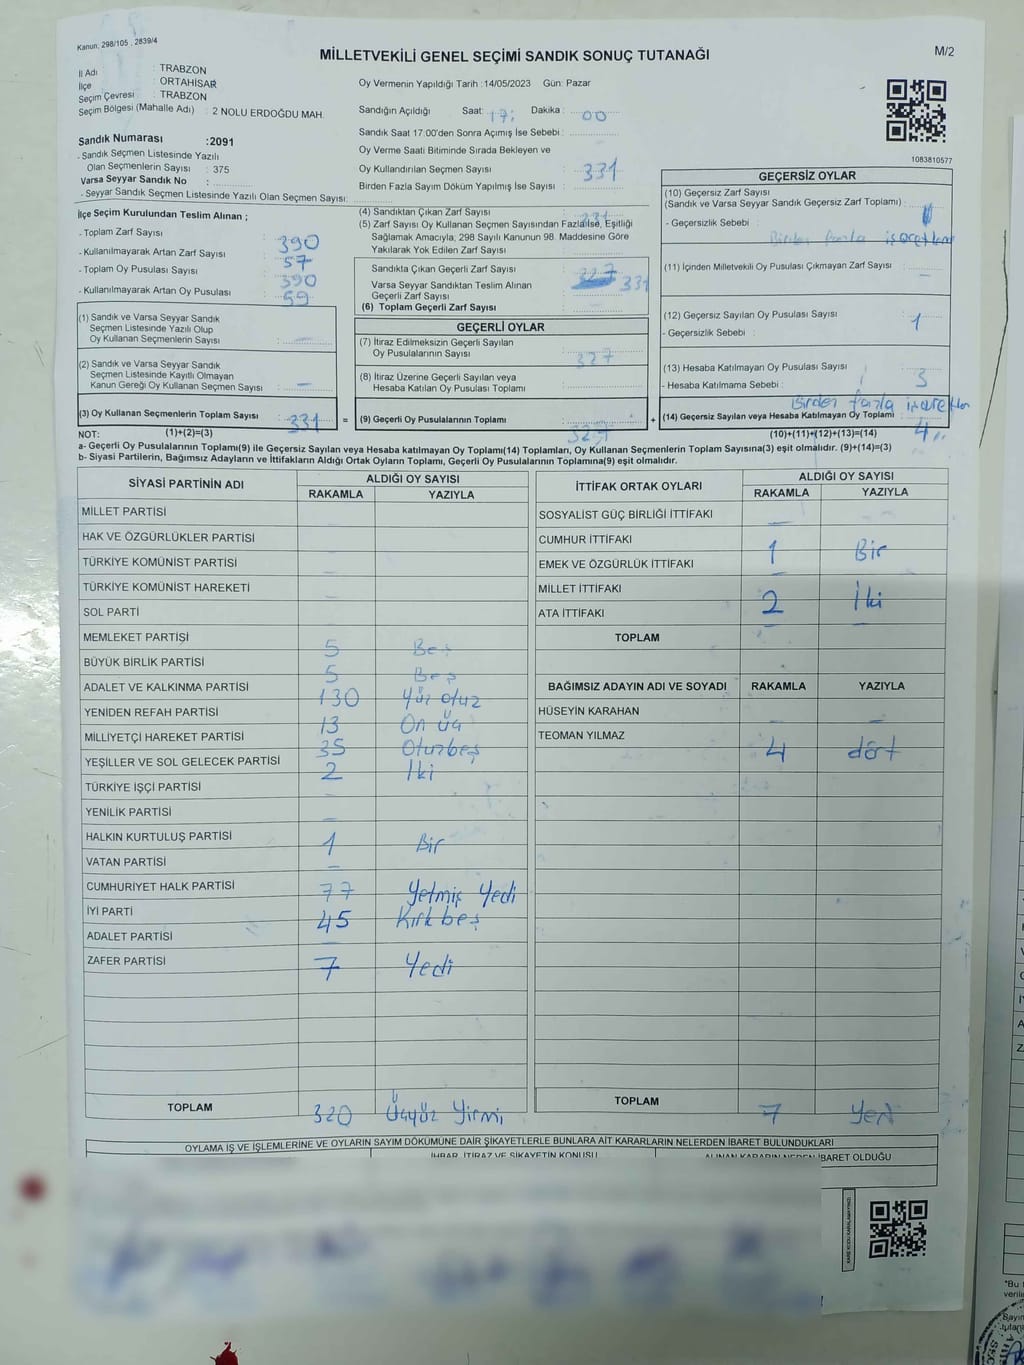 Kanun, 298/105 , 2839/4
MİLLETVEKİLİ GENEL SEÇİMİ SANDIK SONUÇ TUTANAĞI
M/2
İl Adı : TRABZON
İlçe : ORTAHİSAR
Seçim Çevresi : TRABZON
Seçim Bölgesi (Mahalle Adı) : 2 NOLU ERDOĞDU MAH.
Sandık Numarası :2091
- Sandık Seçmen Listesinde Yazılı
Olan Seçmenlerin Sayısı : 375
Varsa Seyyar Sandık No :
- Seyyar Sandık Seçmen Listesinde Yazılı Olan Seçmen Sayısı:
Oy Vermenin Yapıldığı Tarih :14/05/2023 Gün: Pazar
Sandığın Açıldığı Saat: 17: Dakika : 00
Sandık Saat 17:00'den Sonra Açımış İse Sebebi :
Oy Verme Saati Bitiminde Sırada Bekleyen ve
Oy Kullandırılan Seçmen Sayısı : 331
Birden Fazla Sayım Döküm Yapılmış İse Sayısı :
1083810577
İlçe Seçim Kurulundan Teslim Alınan ;
- Toplam Zarf Sayısı : 390
- Kullanılmayarak Artan Zarf Sayısı : 57
- Toplam Oy Pusulası Sayısı : 390
- Kullanılmayarak Artan Oy Pusulası : 59
(1) Sandık ve Varsa Seyyar Sandık
Seçmen Listesinde Yazılı Olup
Oy Kullanan Seçmenlerin Sayısı : —
(2) Sandık ve Varsa Seyyar Sandık
Seçmen Listesinde Kayıtlı Olmayan
Kanun Gereği Oy Kullanan Seçmen Sayısı : —
(3) Oy Kullanan Seçmenlerin Toplam Sayısı : 331 =
(1)+(2)=(3)
(4) Sandıktan Çıkan Zarf Sayısı : 331
(5) Zarf Sayısı Oy Kullanan Seçmen Sayısından Fazla İse, Eşitliği
Sağlamak Amacıyla; 298 Sayılı Kanunun 98. Maddesine Göre
Yakılarak Yok Edilen Zarf Sayısı :
Sandıkta Çıkan Geçerli Zarf Sayısı : 331
Varsa Seyyar Sandıktan Teslim Alınan
Geçerli Zarf Sayısı :
(6) Toplam Geçerli Zarf Sayısı :
GEÇERLİ OYLAR
(7) İtiraz Edilmeksizin Geçerli Sayılan
Oy Pusulalarının Sayısı : 327
(8) İtiraz Üzerine Geçerli Sayılan veya
Hesaba Katılan Oy Pusulası Toplamı :
(9) Geçerli Oy Pusulalarının Toplamı : 327 +
GEÇERSİZ OYLAR
(10) Geçersiz Zarf Sayısı
(Sandık ve Varsa Seyyar Sandık Geçersiz Zarf Toplamı) :
- Geçersizlik Sebebi :
Birden fazla işaretleme
(11) İçinden Milletvekili Oy Pusulası Çıkmayan Zarf Sayısı : —
(12) Geçersiz Sayılan Oy Pusulası Sayısı : 1
- Geçersizlik Sebebi :
(13) Hesaba Katılmayan Oy Pusulası Sayısı : 3
- Hesaba Katılmama Sebebi :
Birden fazla işaretleme
(14) Geçersiz Sayılan veya Hesaba Katılmayan Oy Toplamı : 4
(10)+(11)+(12)+(13)=(14)
NOT:
a- Geçerli Oy Pusulalarının Toplamı(9) ile Geçersiz Sayılan veya Hesaba katılmayan Oy Toplamı(14) Toplamları, Oy Kullanan Seçmenlerin Toplam Sayısına(3) eşit olmalıdır. (9)+(14)=(3)
b- Siyasi Partilerin, Bağımsız Adayların ve İttifakların Aldığı Ortak Oyların Toplamı, Geçerli Oy Pusulalarının Toplamına(9) eşit olmalıdır.
SİYASİ PARTİNİN ADI ALDIĞI OY SAYISI
RAKAMLA YAZIYLA
MİLLET PARTİSİ
HAK VE ÖZGÜRLÜKLER PARTİSİ
TÜRKİYE KOMÜNİST PARTİSİ
TÜRKİYE KOMÜNİST HAREKETİ
SOL PARTİ
MEMLEKET PARTİSİ 5 Beş
BÜYÜK BİRLİK PARTİSİ 5 Beş
ADALET VE KALKINMA PARTİSİ 130 Yüz otuz
YENİDEN REFAH PARTİSİ 13 On üç
MİLLİYETÇİ HAREKET PARTİSİ 35 Otuzbeş
YEŞİLLER VE SOL GELECEK PARTİSİ 2 İki
TÜRKİYE İŞÇİ PARTİSİ
YENİLİK PARTİSİ
HALKIN KURTULUŞ PARTİSİ 1 Bir
VATAN PARTİSİ —
CUMHURİYET HALK PARTİSİ 77 Yetmiş Yedi
İYİ PARTİ 45 Kırkbeş
ADALET PARTİSİ
ZAFER PARTİSİ 7 Yedi
TOPLAM 320 Üçyüz Yirmi
İTTİFAK ORTAK OYLARI ALDIĞI OY SAYISI
RAKAMLA YAZIYLA
SOSYALİST GÜÇ BİRLİĞİ İTTİFAKI —
CUMHUR İTTİFAKI 1 Bir
EMEK VE ÖZGÜRLÜK İTTİFAKI —
MİLLET İTTİFAKI 2 İki
ATA İTTİFAKI —
TOPLAM
BAĞIMSIZ ADAYIN ADI VE SOYADI RAKAMLA YAZIYLA
HÜSEYİN KARAHAN — —
TEOMAN YILMAZ 4 dört
TOPLAM 7 Yedi
OYLAMA İŞ VE İŞLEMLERİNE VE OYLARIN SAYIM DÖKÜMÜNE DAİR ŞİKAYETLERLE BUNLARA AİT KARARLARIN NELERDEN İBARET BULUNDUKLARI
İHBAR, İTİRAZ VE ŞİKAYETİN KONUSU ALINAN KARARIN NEDEN İBARET OLDUĞU